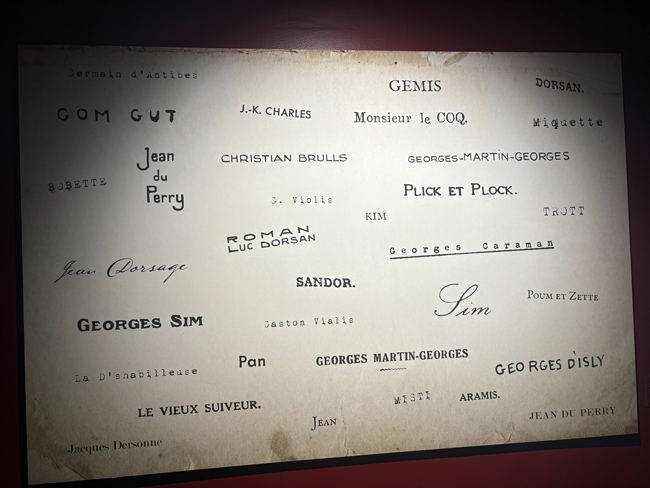 Germain d'Antibes
GEMIS
DORSAN.
GOM GUT
J.-K. CHARLES
Monsieur le COQ.
Miquette
Jean
du
Perry
CHRISTIAN BRULLS
GEORGES-MARTIN-GEORGES
BOBETTE
G. Violis
PLICK ET PLOCK.
KIM
TROTT
ROMAN
LUC DORSAN
Georges Caraman
Jean Dorsage
SANDOR.
Sim
POUM ET ZETTE
GEORGES SIM
Gaston Vialis
La D'shabilleuse
Pan
GEORGES MARTIN-GEORGES
GEORGES D'ISLY
LE VIEUX SUIVEUR.
MISTI
ARAMIS.
JEAN
JEAN DU PERRY
Jacques Dersonne